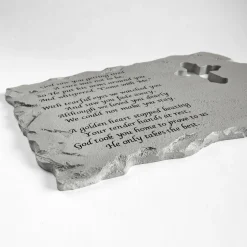 God saw you getting tired
A cure was not to be.
So He put His arms around you
And whispered "Come with Me."
With tearful eyes we watched you
And saw you fade away
Although we loved you dearly
We could not make you stay.
A golden heart stopped beating
Your tender hands at rest,
God took you home to prove to us
He only takes the best.